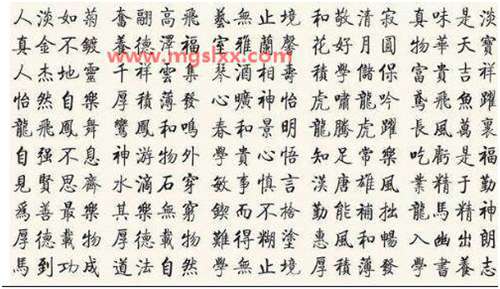 人淡如菊 奮翮高飛 藝無止境 和敬清寂 真味是淡
真金不鍍 養德澤福 雅蘭馨 花好月圓 物華天寶
www.mgsixx.com
人杰地靈 千祥雲集 酒相 學儲 富貴吉祥
怡然自樂 厚積薄發 心曠神怡 虎嘯龍吟 鳶飛魚躍
龍飛鳳舞 鸞鳳和鳴 春和景明 龍騰虎躍 長風萬裏
自强不息 神游物外 學貴心悟 知足常樂 吃虧是福
見賢思齊 水滴石穿 敏事慎言 漢唐雄風 業精于勤
爲善最樂 其樂無窮 鍥而不捨 勤能補拙 龍馬精神
厚德載物 厚德載物 難得糊塗 惠風和暢 入幽出朗
馬到功成 道法自然 學無止境 厚積薄發 學書養志